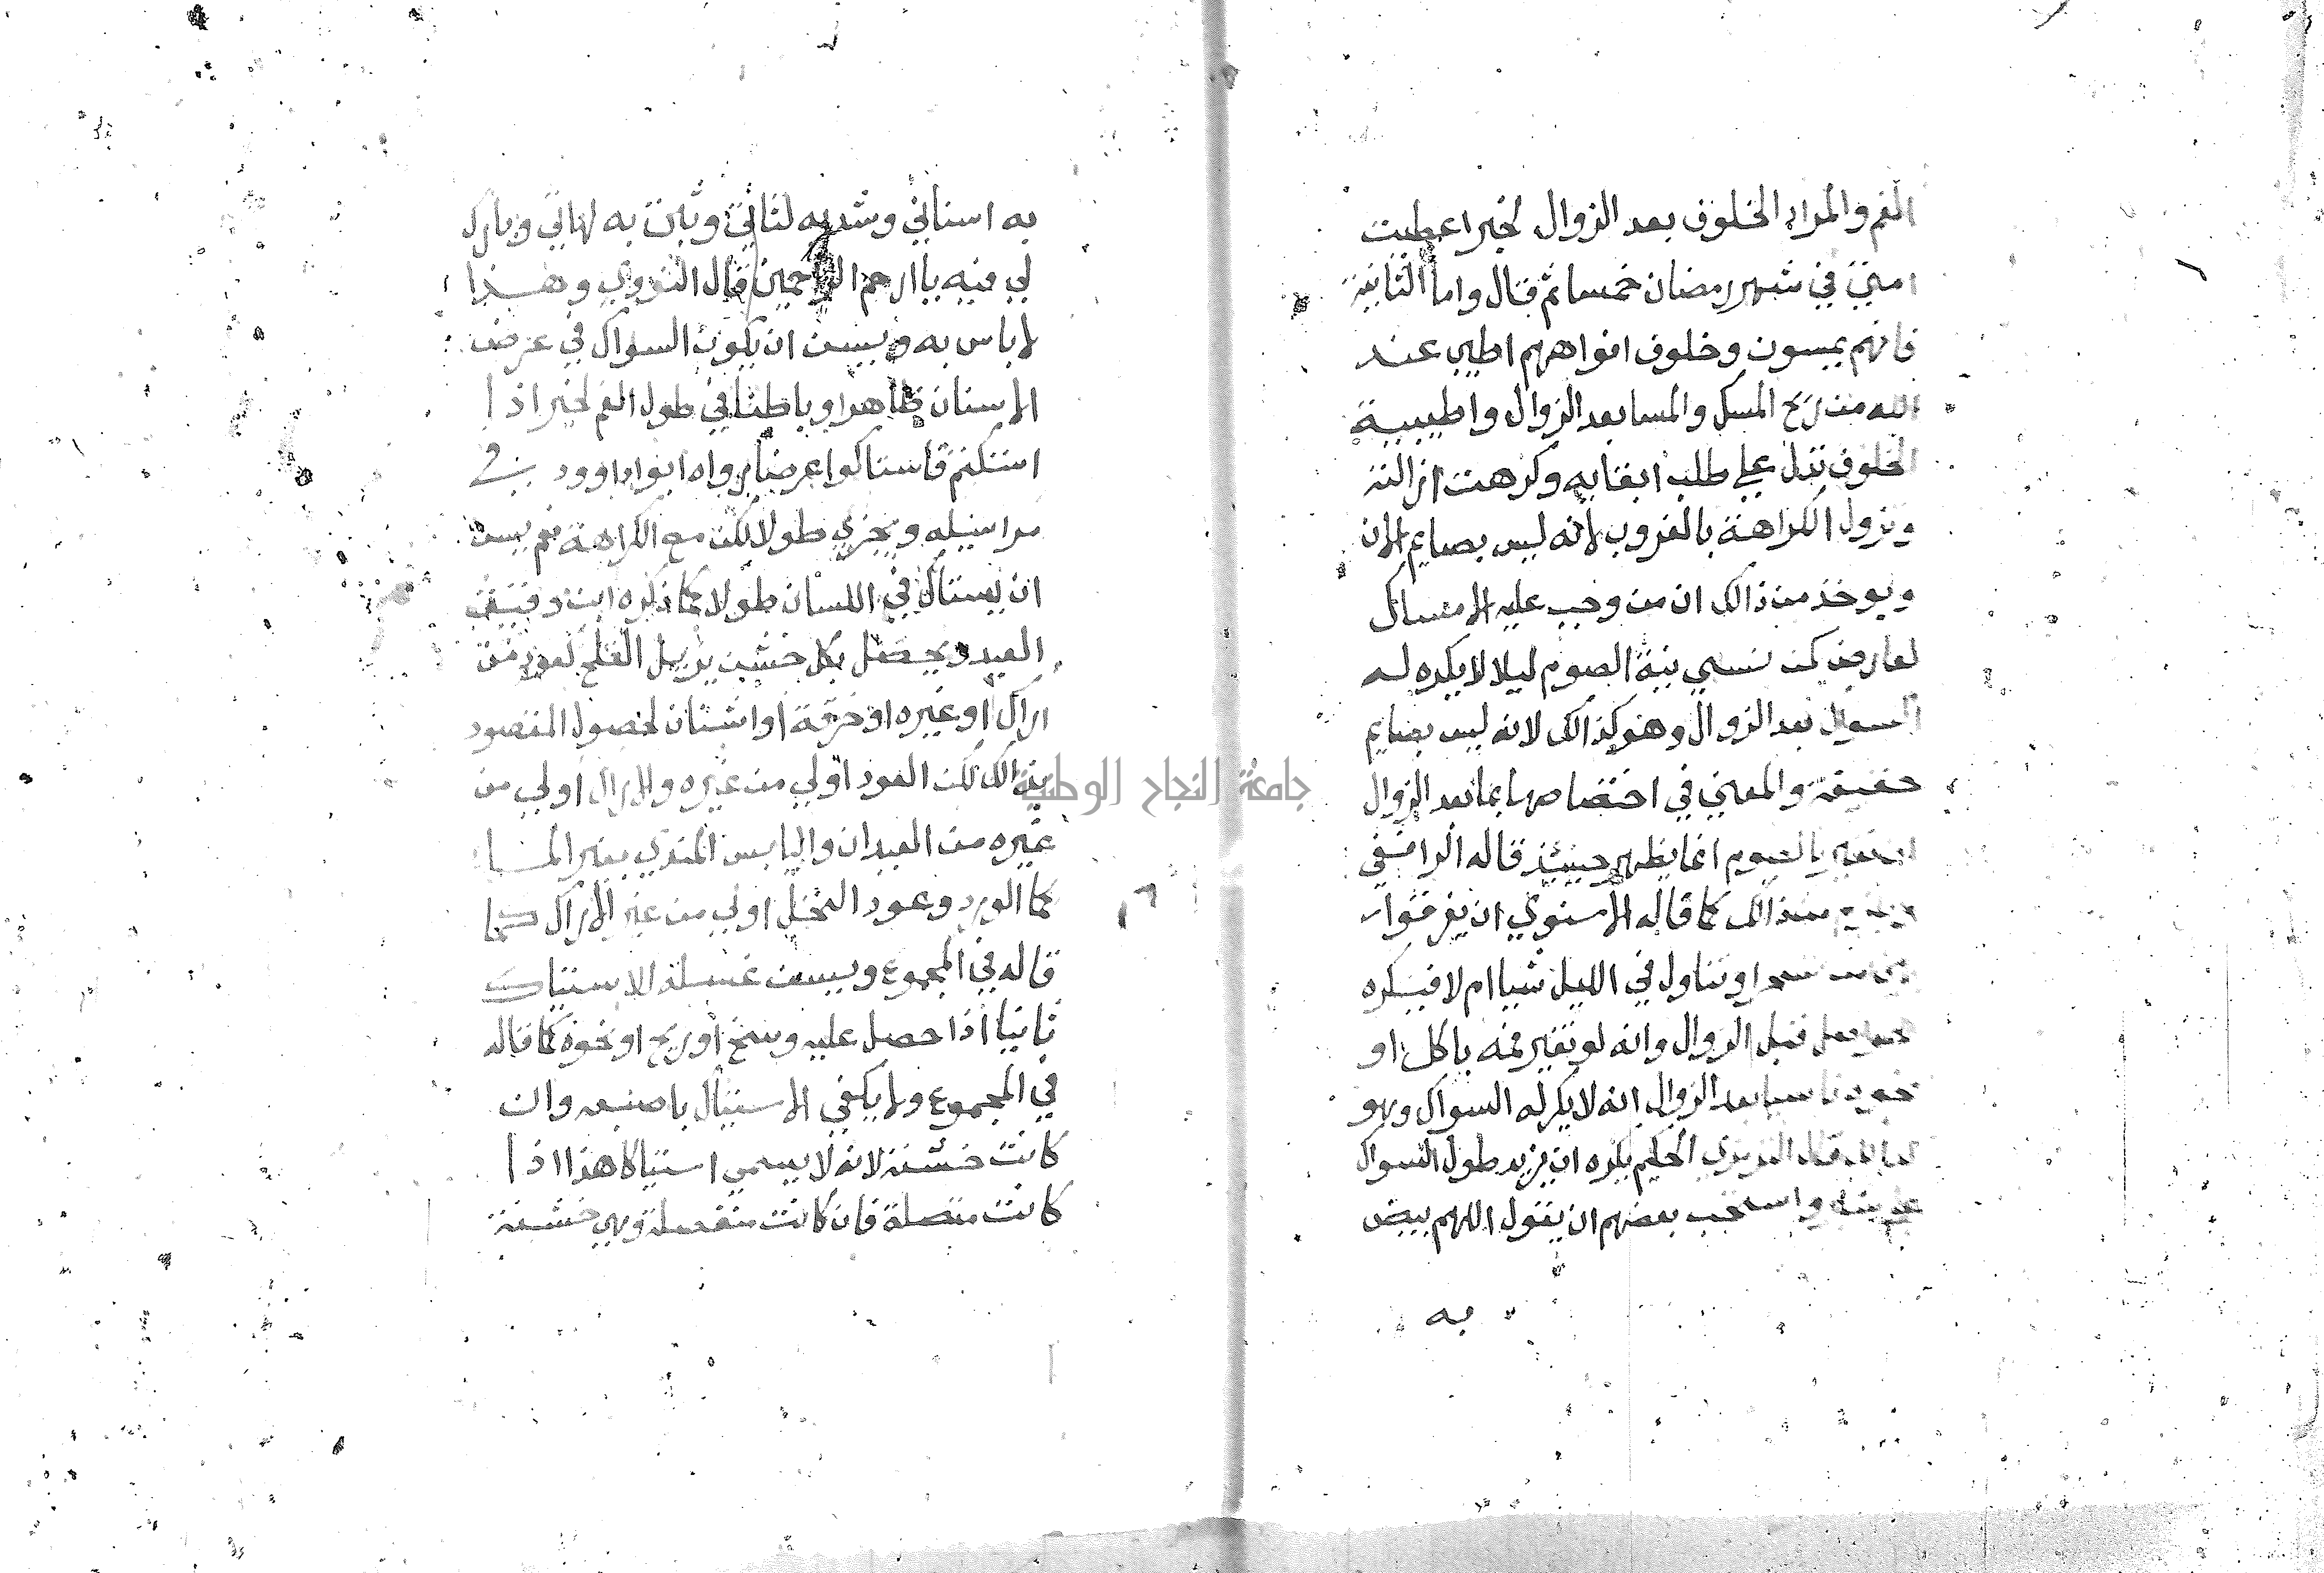 الفم والمراد الخلوف بعد الزوال لخبر اعطيت
امتي في شهر رمضان خمسا ثم قال واما الثانية
فانهم يمسون وخلوف افواههم اطيب عند
الله من ريح المسك والمسا بعد الزوال واطيبية
الخلوف تدل علي طلب ابقايه وكرهت ازالته
وتزول الكراهة بالغروب لانه ليس بصايم الان
ويوخذ من ذالك ان من وجب عليه الامساك
لعارض كمن نسي نية الصوم ليلا لا يكره له
السواك بعد الزوال وهو كذالك لانه ليس بصايم
حقيقة والمعني في اختصاصها بما بعد الزوال
ان تغير بالصوم انما يظهر حينئذ قاله الرافعي
من ذالك كما قاله الاسنوي ان يفرقوا
او تناول في الليل شيا ام لا فيكره
قبل الزوال وانه لو تغير فمه باكل او
بعد الزوال انه لا يكره له السواك وهو
الحكيم يكره ان يزيد طول السواك
واستحب بعضهم ان يقول اللهم بيض
به
به اسناني وشد به لثاتي وثبت به لهاتي وبارك
لي فيه يا ارحم الراحمين قال النووي وهذا
لا باس به ويسن ان يكون السواك في عرض
الاسنان ظاهرا وباطنا في طول الفم لخبر اذا
استكتم فاستاكوا عرضا رواه ابوا داوود في
مراسيله ويجزي طولا لكن مع الكراهة نعم يسن
ان يستاك في اللسان طولا كما ذكره ابن دقيق
العيد ويحصل بكل خشن يزيل القلح كعود من
اراك او غيره او خرقة او اشنان لحصول المقصود
بذالك لكن العود اولي من غيره والاراك اولي من
غيره من العيدان واليابس المندي بغير الما
كما الورد وعود النخل اولي من غير الاراك كما
قاله في المجموع ويسن غسله للاستياك
ثانيا اذا حصل عليه وسخ او ريح او نحوه كما قاله
في المجموع ولا يكفي الاستياك باصبعه وان
كانت خشنة لانه لا يسمي استياكا هذا اذا
كانت متصلة فان كانت منفصلة وهي خشنة
جامعة النجاح الوطنية